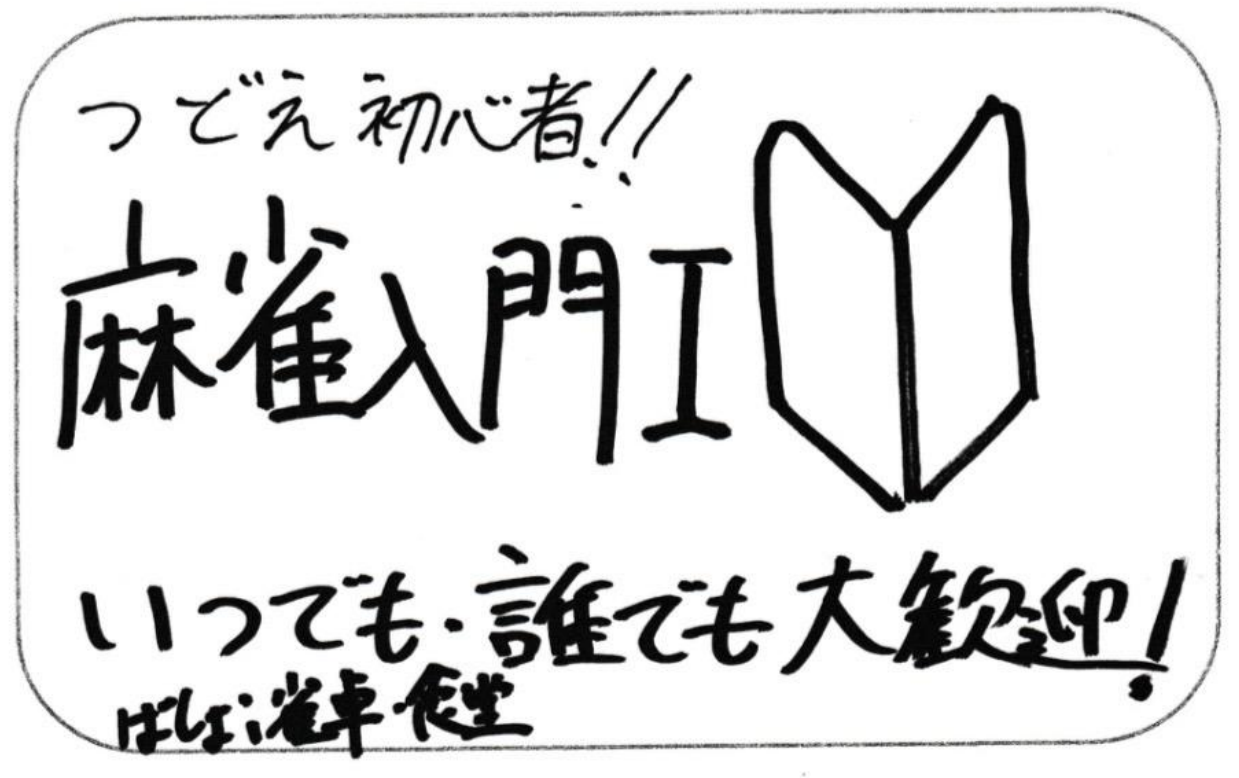 つどえ初心者!!
麻雀入門I
いつでも・誰でも大歓迎!
ばしょ:雀卓・食堂